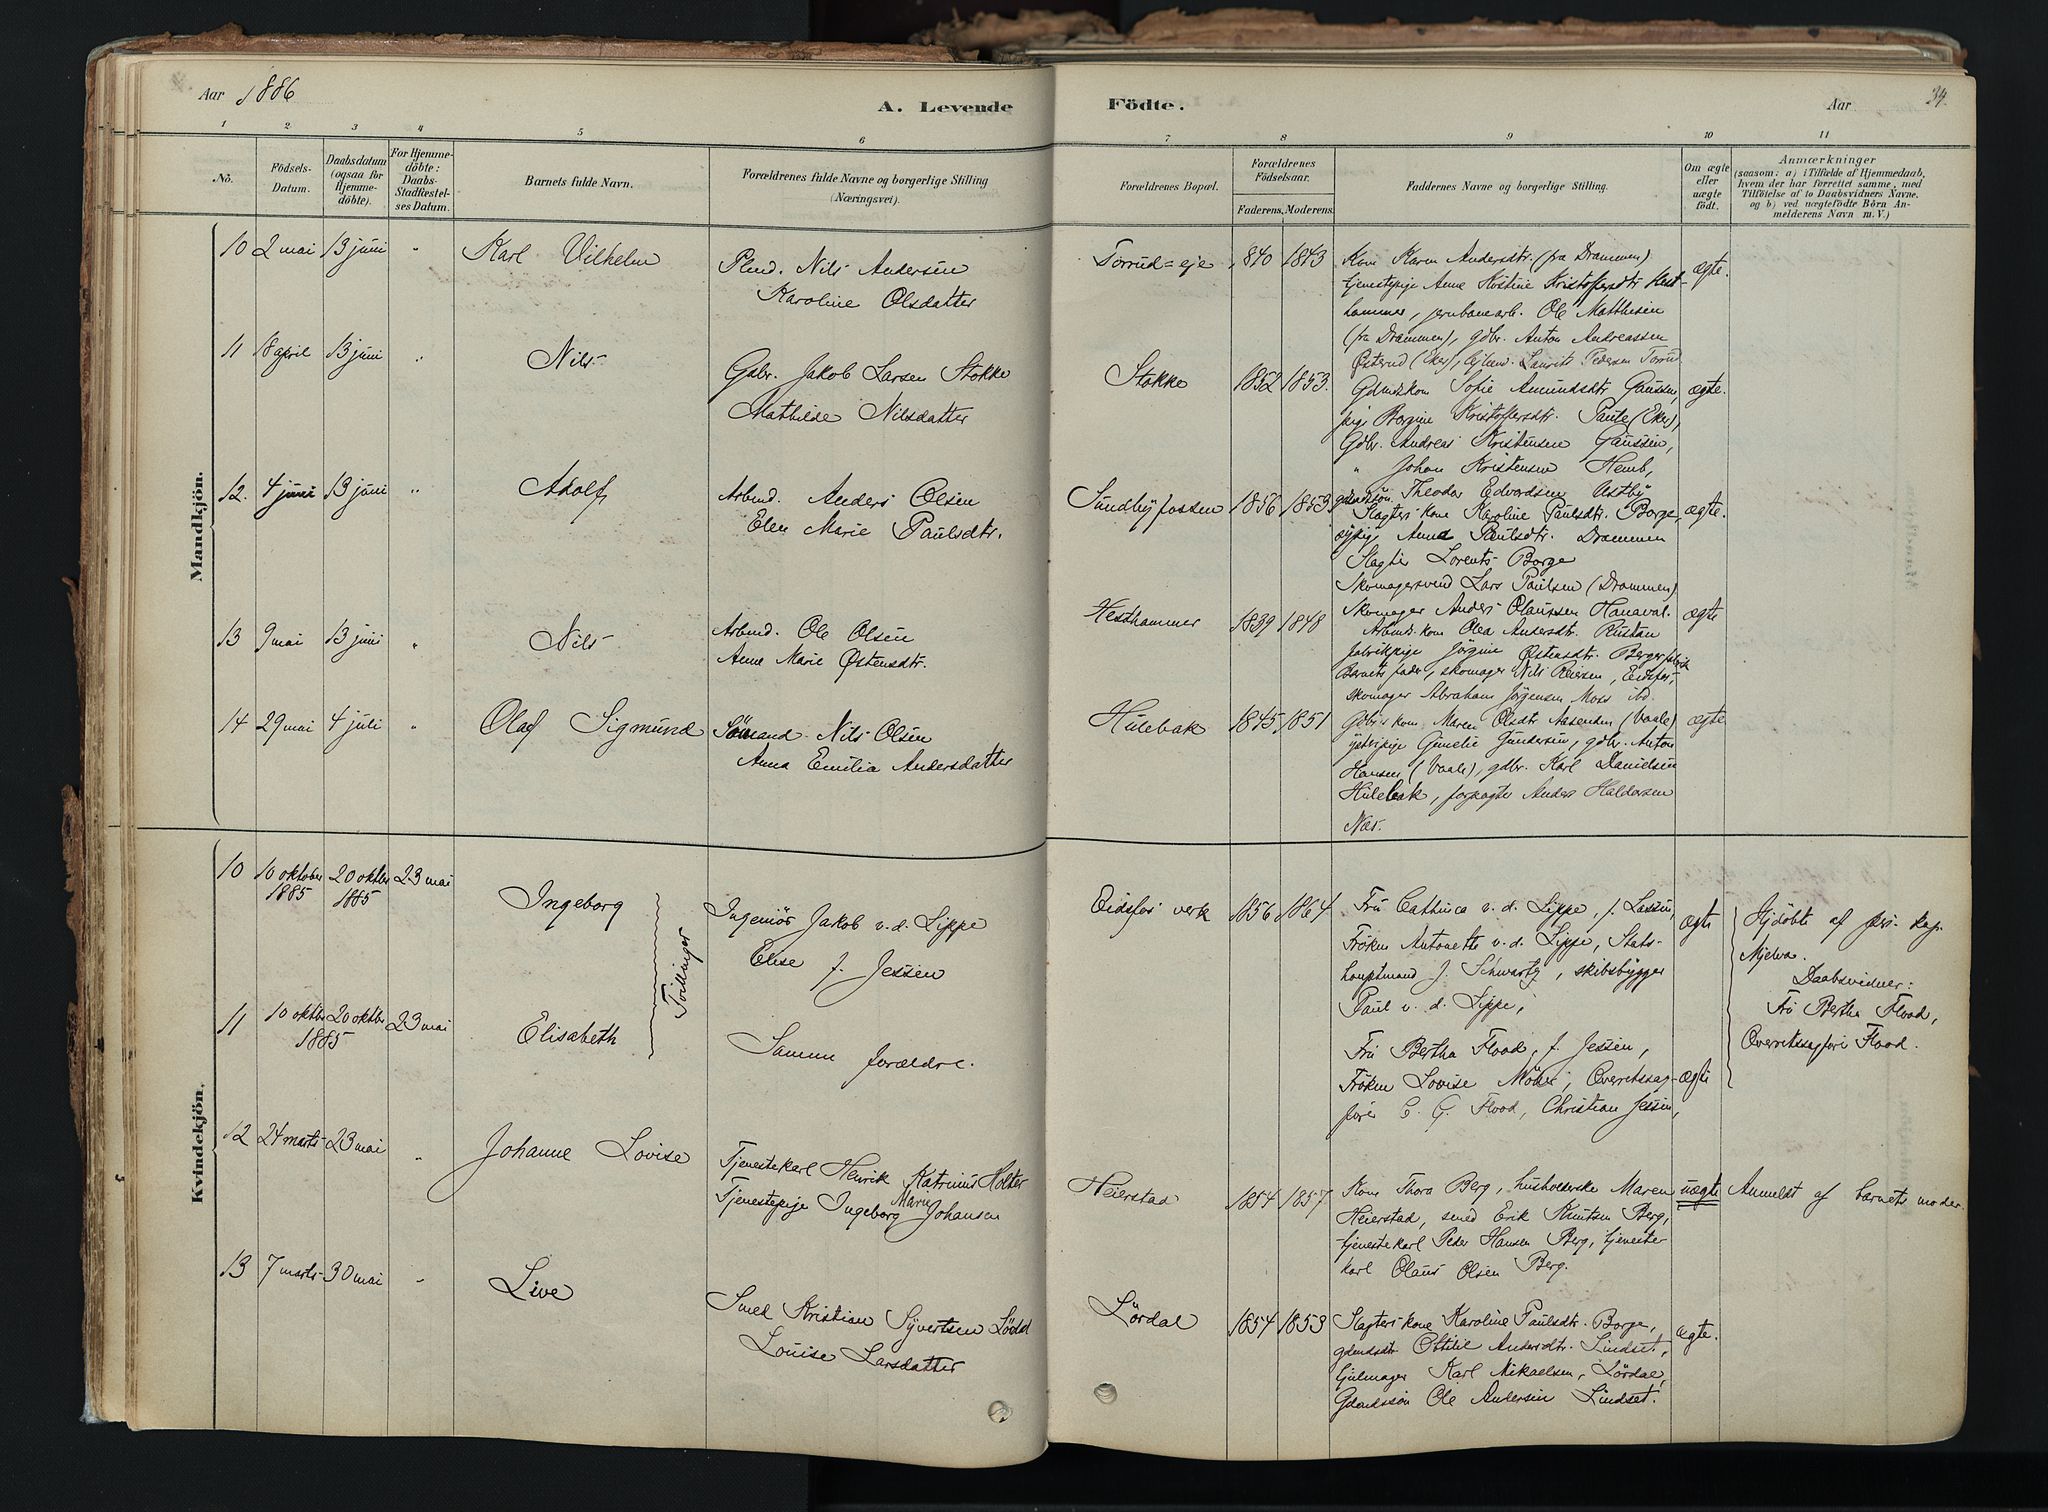 Aar 1886
A. Levende
Födte.
Aar
34.
1 2 3 4 5 6 7 8 9 10 11
No.
Födsels-
Datum.
Daabsdatum
(ogsaa for
Hjemme-
döbte).
For Hjemme-
döbte:
Daabs-
Stadfæstel-
ses Datum.
Barnets fulde Navn.
Forældrenes fulde Navne og borgerlige Stilling
(Næringsvei).
Forældrenes Bopæl.
Forældrenes
Födselsaar.
Faderens. Moderens.
Faddernes Navne og borgerlige Stilling.
Om ægte
eller
uægte
født.
Anmærkninger
(saasom: a) i Tilfælde af Hjemmedaab,
hvem der har forrettet samme, med
Tilföielse af to Daabsvidners Navne.
og b) ved uægtefödte Börn An-
melderens Navn m. V.)
Mandkjön.
10 2 mai 13 juni " Karl Vilhelm
Nils Andersen
Karoline Olsdatter
Torrud=eje 1840 1843
Kone Karen Andersdtr. (fra Drammen)
tjenestepige Anne Kristoffersdtr Hest-
hammer, jernbanearb. Ole Matthisen
(fra Drammen), gdbr. Anton Andreassen
Østerud (Eker), Laurits Pedersen Torrud
ægte.
11 18 april 13 juni " Nils
Gdbr. Jakob Larsen Stokke
Mathilde Nilsdatter
Stokke 1852 1853.
Sofie Amundsdtr. Gaussen,
pige Kristoffersdtr. (Eker),
Gdbr. Andreas Kristensen Gaussen,
" Johan Kristensen Hemb,
gdmdssøn Theodor Edvardsen Astby
ægte.
12. 4 juni 13 juni " Adolf
Arbmd. Anders Olsen
Elen Marie Paulsdtr.
Sundbyfossen 1856 1853.
Slagters kone Karoline Paulsdtr. Borge,
sypige Anna Paulsdtr. Drammen
Slagter Lorents Borge
Skomagersvend Lars Paulsen (Drammen)
Skomager Anders Olaussen Hanaval.
ægte.
13 9 mai 13 juni " Nils
Arbmd. Ole Olsen
Anne Marie Østensdtr.
Hesthammer 1839 1848
Arbmds. kone Olea Andersdtr. Rustan
fabrikpige Jørgine Østensdtr. Berger fabrik
Barnets fader, skomager Nils Reiersen, Eidsfos,
skomager Abraham Jørgensen Moss ibd.
ægte
14 29 mai 4 juli " Olaf Sigmund
Sømand Nils Olsen
Anna Emilia Andersdatter
Hulebak 1845 1851
Gdbr's kone Maren Olsdtr Aasenden (Vaale)
Gundersen, gdbr. Anton
Hansen (Vaale), gdbr. Karl Danielsen
Hulebak, forpagter Anders Haldorsen
Næs.
ægte
Kvindekjön.
10 10 oktober 1885 20 oktbr 1885 23 mai Ingeborg
Tvillinger
Ingeniør Jakob v. d. Lippe
Elise f. Jessen
Eidsfos verk 1856 1864
Fru Cathinca v. d. Lippe, f. Lassen,
Frøken Antonette v. d. Lippe, Stats-
hauptmand J. Schwartz, skibsbygger
Paul v. d. Lippe,
ægte
Hjdöbt af Kap.
Mjelva.
Daabsvidner:
Fru Bertha Flood,
Overretssagfører Flood.
11 10 oktbr 1885 20 oktbr 23 mai Elisabeth
Samme forældre.
Fru Bertha Flood, f. Jessen,
Frøken Lovise Møller, Overretssag-
fører C. G. Flood, Christian Jessen,
ægte
12 24 marts 23 mai " Johanne Lovise
Tjenestekarl Henrik Katrinus Holter
Tjenestepige Ingeborg Marie Johansen
Heierstad 1854 1857
Kone Thora Berg, husholderske Maren
Heierstad, smed Erik Knutsen Berg,
tjenestekarl Peder Hansen Berg, tjeneste-
karl Olaus Olsen Berg.
uægte
Anmeldt af barnets moder.
13 7 marts 30 mai " Live
Smed Kristian Syvertsen
Louise Larsdatter
Lørdal 1854 1853
Slagters kone Karoline Paulsdtr. Borge,
gdmdsdtr Ottilie Andersdtr. Lindset,
hjulmager Karl Mikaelsen, Lørdal,
Gdmdssøn Ole Andersen Lindset.
ægte.